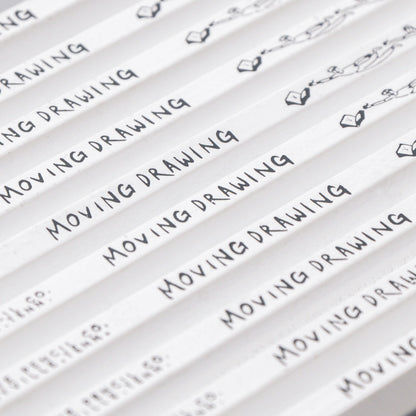 NG
DRAWING
ING DRAWING
MOVING DRAWING
MOVING DRAWING
MOVING DRAWING
MOVING DRAWING
MOVING DRAWING
MOVING DRAW
MOVING